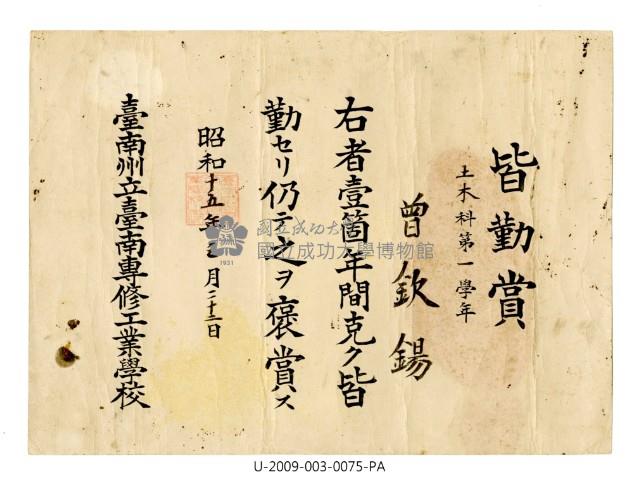 皆勤賞
土木科第一學年
曾欽錫
右者壹箇年間克ク皆
勤セリ仍テ之ヲ褒賞ス
昭和十五年三月二十二日
臺南州立臺南專修工業學校
國立成功大學
國立成功大學博物館
1931
U-2009-003-0075-PA